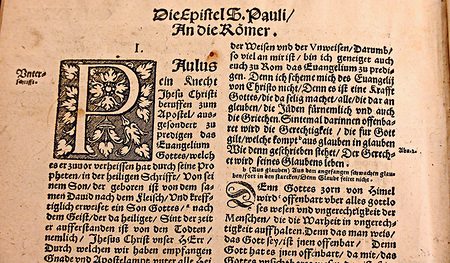 Die Epistel S. Pauli/
An die Römer.
I.
Paulus
ein Knecht
Jhesu Christi
beruffen zum
Apostel/ aus
gesondert zu
predigen das
Euangelium
Gottes/welch
es er zuuor verheissen hat durch seine Pro
pheten/ in der heiligen Schrifft/ Von sei
nem Son/ der geboren ist von dem sa
men Dauid nach dem Fleisch/ Vnd kreff
tiglich erweiset ein Son Gottes/ * nach
dem Geist/ der da heiliget/ Sint der zeit
er aufferstanden ist von den Todten/
nemlich/ Jhesus Christ vnser HErr/
Durch welchen wir haben empfangen
Gnade vnd Apostelampt vnter alle Hei
der Weisen vnd der Vnweisen/ Darumb/
so viel an mir ist/ bin ich geneigt auch
euch zu Rom das Euangelium zu predi
gen. Denn ich scheme mich des Euangelij
von Christo nicht/ Denn es ist eine Krafft
Gottes/ die da selig machet/ alle/ die dar an
gleuben/ die Jüden fürnemlich vnd auch
die Griechen. Sintemal darinnen offenba
ret wird die Gerechtigkeit / die fur Gott
gilt/ welche kompt aus glauben in glauben
Wie denn geschrieben stehet/ Der Gerech
te wird seines Glaubens leben.
b (Aus glauben) Aus dem angefangen schwachen glau
ben/ fort in den starcken/ Denn Glaube feiret nicht.
DEnn Gottes zorn von Himel
wird offenbart vber alles gottlo
ses wesen vnd vngerechtigkeit der
Menschen / die die Warheit in vngerech
tigkeit auffhalten. Denn das man weis/
das Gott sey/ ist jnen offenbar / Denn
Gott hat es jnen offenbart / da mit das